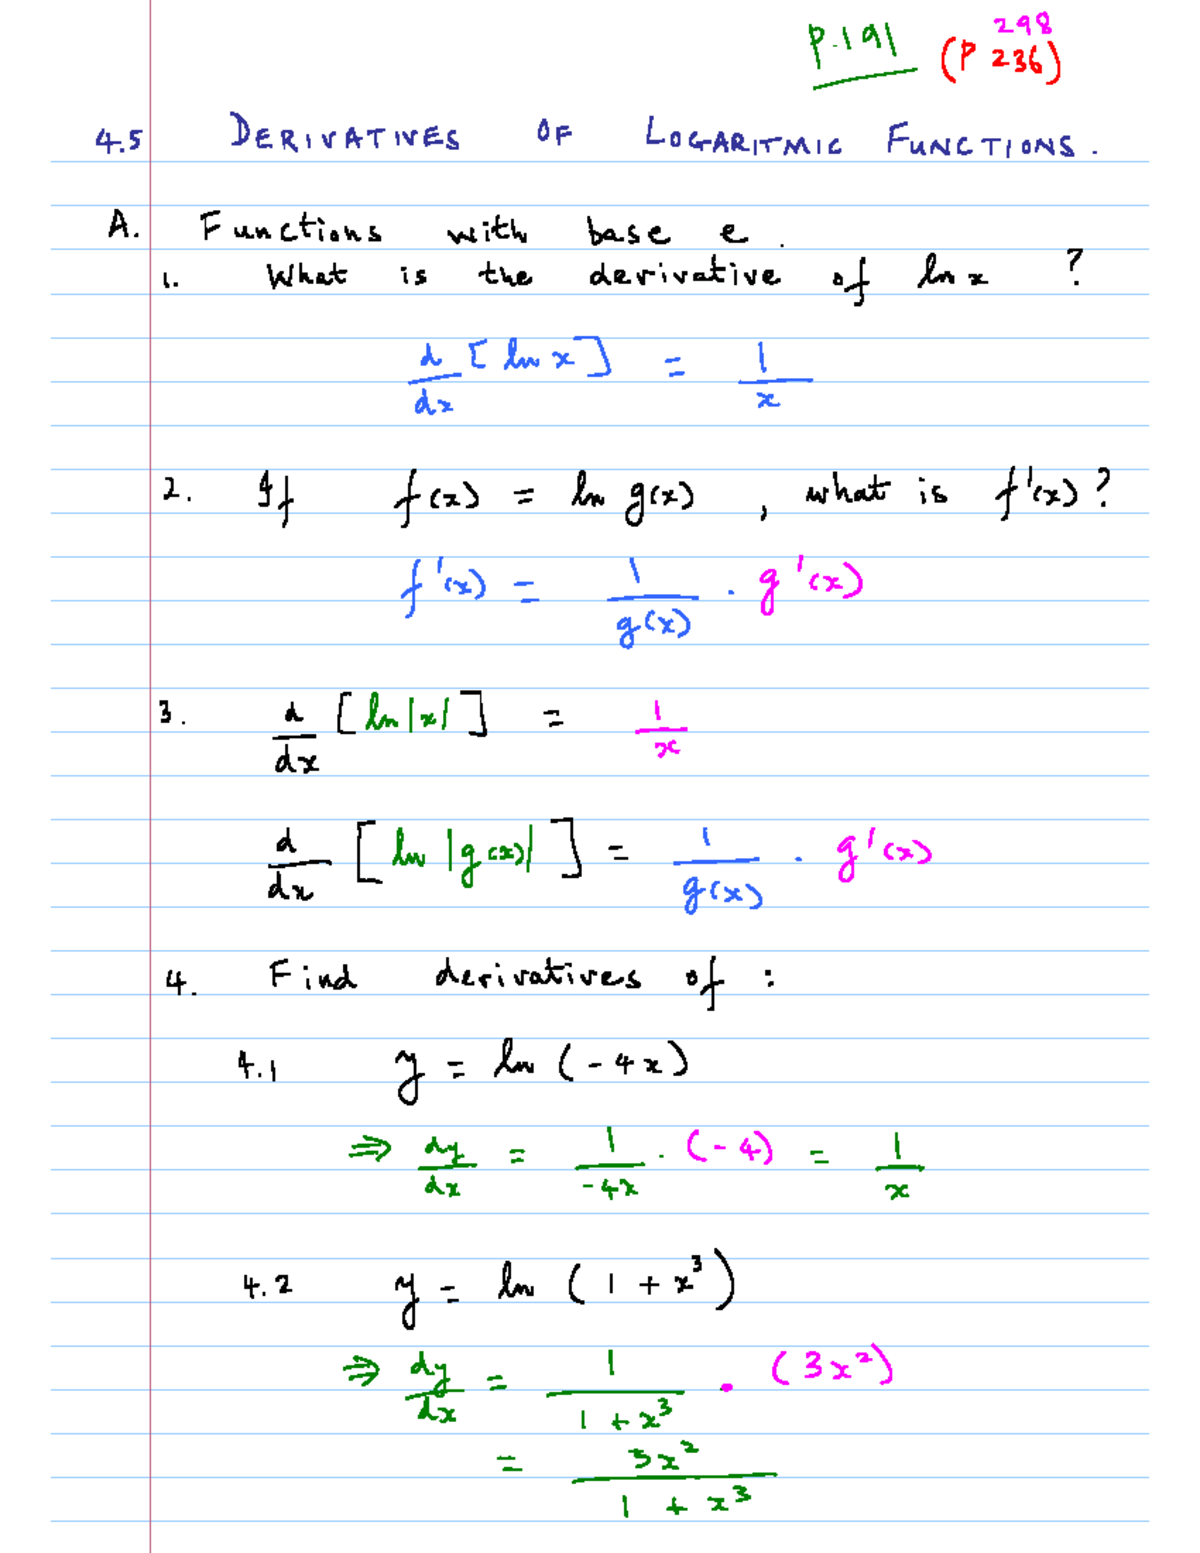 p.191 (P 236)
298
4.5 DERIVATIVES OF LOGARITMIC FUNCTIONS.
A. Functions with base e.
1. What is the derivative of ln x ?
d/dx [ln x] = 1/x
2. If f(x) = ln g(x), what is f'(x)?
f'(x) = 1/g(x) · g'(x)
3. d/dx [ln|x|] = 1/x
d/dx [ln |g(x)|] = 1/g(x) · g'(x)
4. Find derivatives of :
4.1 y = ln (-4x)
⇒ dy/dx = 1/-4x · (-4) = 1/x
4.2 y = ln (1 + x³)
⇒ dy/dx = 1/(1 + x³) · (3x²)
= 3x²/(1 + x³)